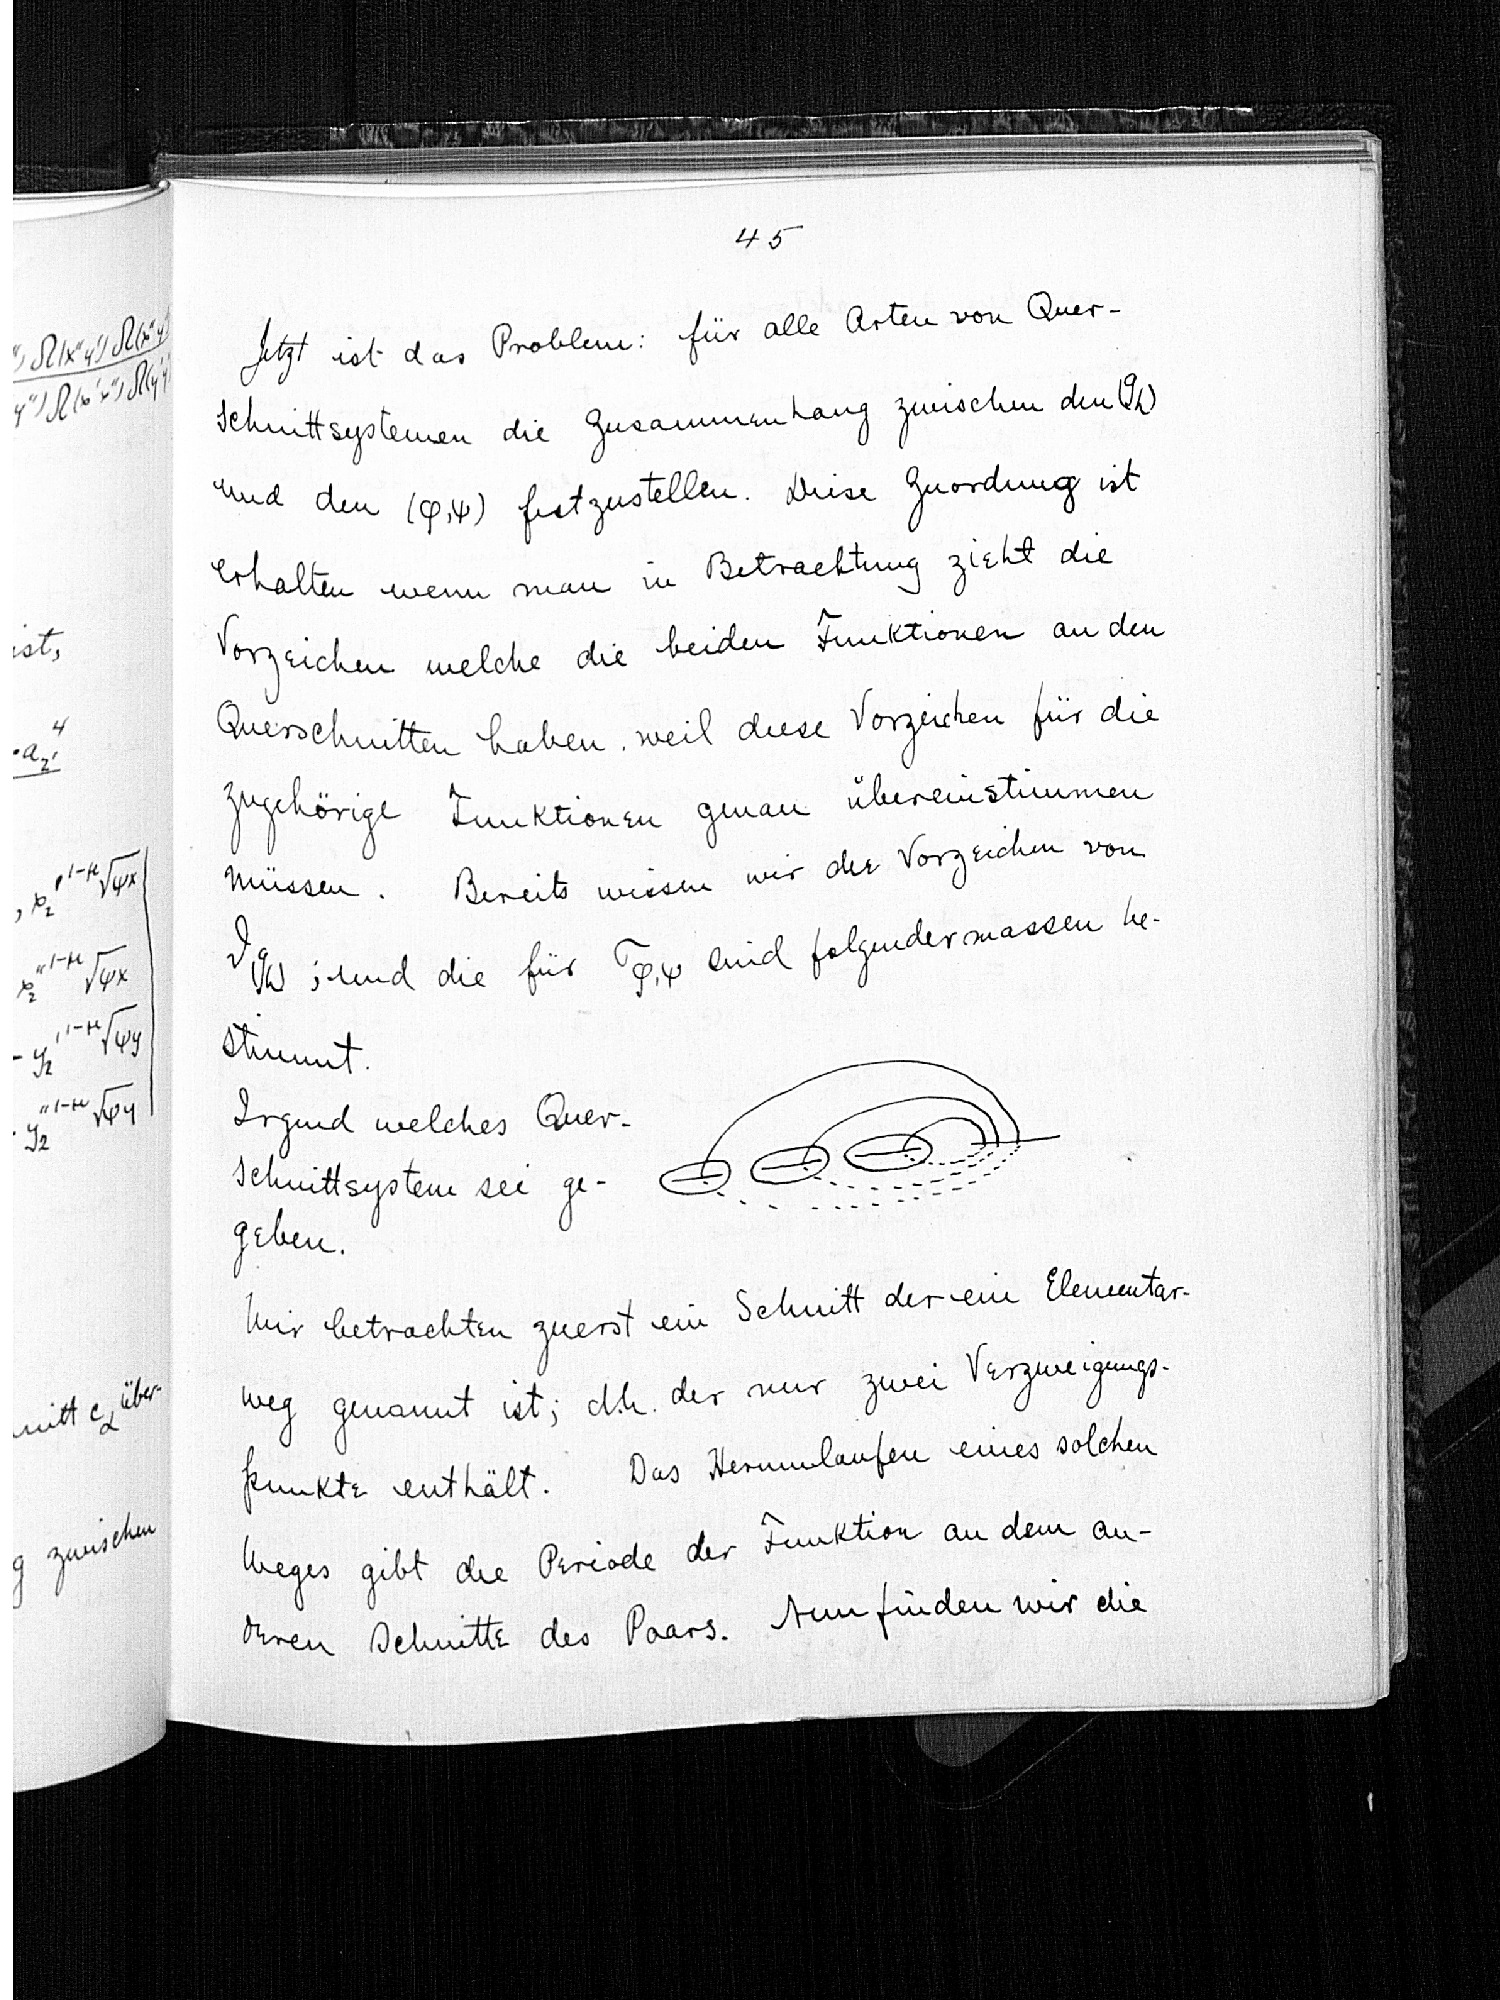 45
Jetzt ist das Problem: für alle Arten von Quer-
schnittsystemen die Zusammenhang zwischen den (g,h)
und den (φ,ψ) festzustellen. Diese Zuordnung ist
erhalten wenn man in Betrachtung zieht die
Vorzeichen welche die beiden Funktionen an den
Querschnitten haben. weil diese Vorzeichen für die
zugehörige Funktionen genau übereinstimmen
müssen. Bereits wissen wir die Vorzeichen von
ϑ(g,h) ; und die für σφ,ψ sind folgendermassen be-
stimmt.
Irgend welches Quer-
schnittsystem sei ge-
geben.
Wir betrachten zuerst ein Schnitt der ein Elementar-
weg genannt ist; d.h. der nur zwei Verzweigungs-
punkte enthält. Das Herumlaufen eines solchen
Weges gibt die Periode der Funktion an dem an-
deren Schnitte des Paars. Nun finden wir die
ist,
·a₂'⁴
, x₂'¹⁻ᵘ√ψx
x₂"¹⁻ᵘ√ψx
- y₂'¹⁻ᵘ√ψy
- y₂"¹⁻ᵘ√ψy
über-
zwischen